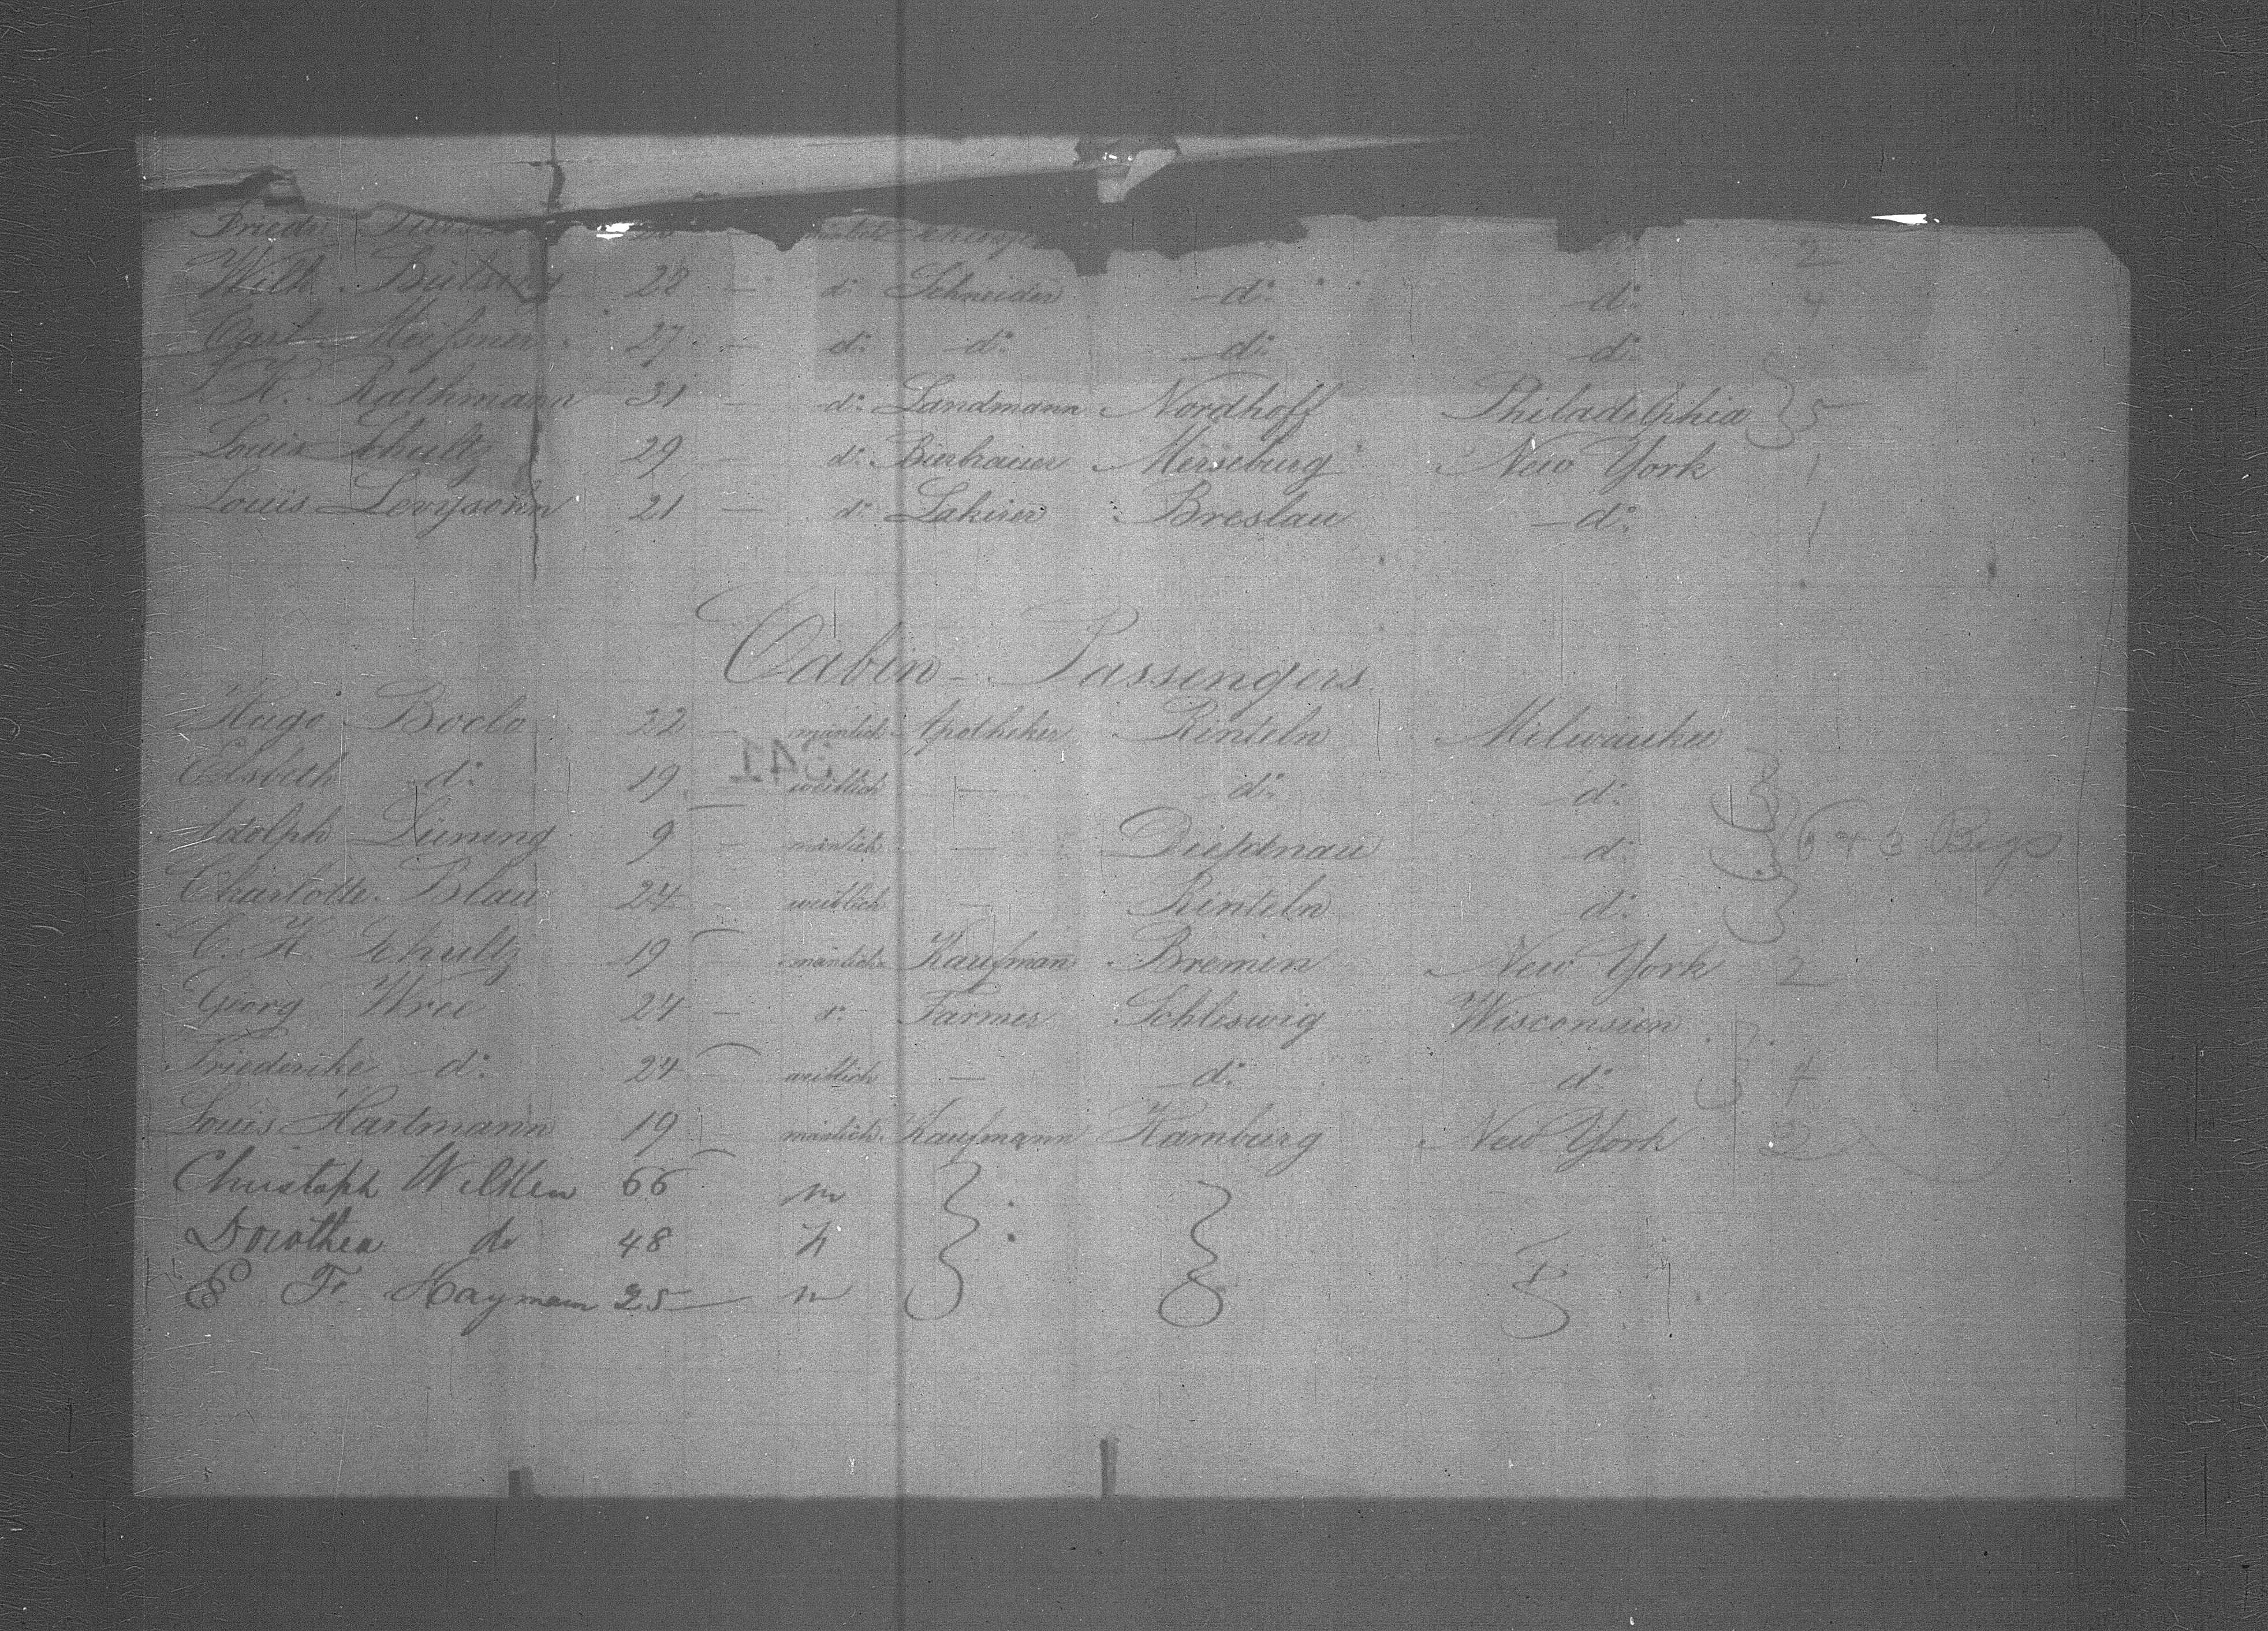 Friedr
Wilh. 28 — do Schneider — do — do 4
Carl Meißner 27 — do — do — do — do
H. Rathmann 31 — do Landmann Nordhoff Philadelphia 5
Louis Schultz 29 — do Bierbrauer Merseburg New York 1
Louis Levysohn 21 — do Lakirer Breslau — do 1
Cabin - Passengers.
Hugo Boclo 22 — mänlich Apotheker Rinteln Milwaukee
Elsbeth do 19 — weiblich — do do
Adolph Lüning 9 — mänlich — Diepenau do
Charlotte Blau 24 — weiblich — Rinteln do
C. H. Schultz 19 — mänlich Kaufman Bremen New York 2
Georg Wree 24 — do Farmer Schleswig Wisconsien
Friederike do 24 — weiblich — do do 4
Louis Hartmann 19 — mänlich Kaufmann Hamburg New York 2
Christoph Wilken 66 m
Dorothea do 48
E Fr Haymann 25 — m